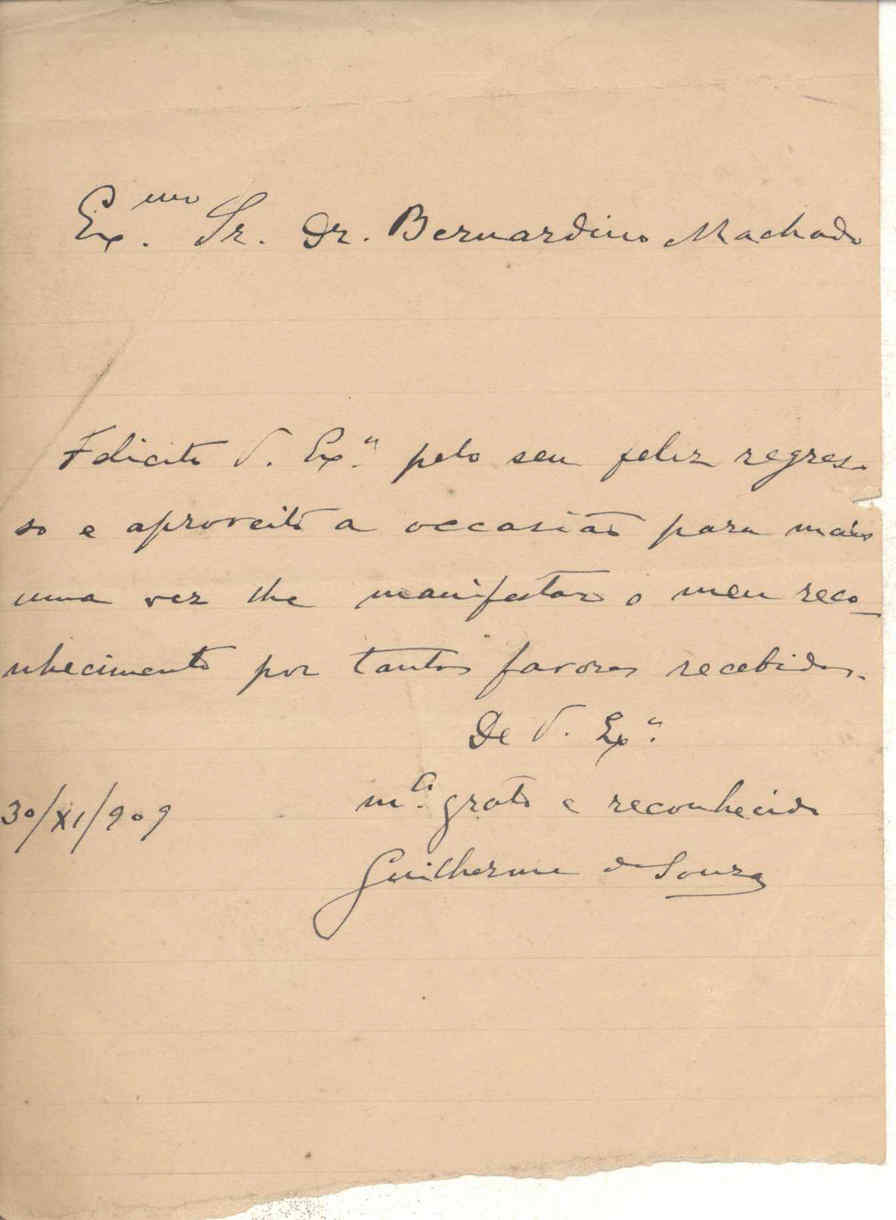 Ex.mo Sr. Dr. Bernardino Machado
Felicito V. Ex.ª pelo seu feliz regres-
so e aproveito a occasião para mais
uma vez lhe manifestar o meu reco-
nhecimento por tantos favores recebidos.
De V. Ex.ª
m.to grato e reconhecido
30/XI/909
Guilherme de Souza